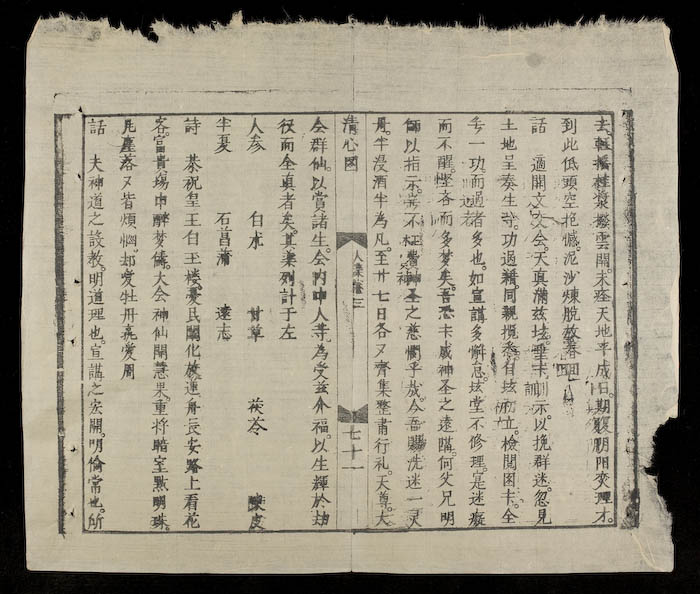 去輕搖桂漿撥雲開。未經天地平成日。期輹朋陽爕理才。
到此低頭空抱憾。泥沙煉脫放春回
話　適開文文会。天真滿玆坛。垂卡訓示。以挽群迷。忽見
土地呈奏生等。功过籍。同親攬悉。自坛初立。檢閱因卡。全
無一功。而過者多也。如宣講多懈怠。坛堂不修理。是迷癡
而不醒。慳吝而多梦矣。吾恐卡威神圣之遠瞩。何父兄明
師以指示。豈不枉費神圣之慈憫乎哉。今吾賜洗迷一灵
丹。半浸酒半為凡。至廿七日各又齊集整肅行礼。天尊大
清心因
人集卷三
七十一
会群仙。以賞諸生。会內中人等為受玆介福。以生輝於刼
後而全真者矣。其藥列計于左
人参　白朮　甘草　茯苓　陳皮
半夏　石菖蒲　遠志
詩　恭祝皇王白玉楼。憂民闡化放蓮舟。長安路上看花
客。富貴錫中醉梦儔。大会神仙開慧果。重将暗室㸃明珠。
凡塵落又皆煩惱。却愛牡丹亦愛周
話　夫神道之設教。明道理也。宣講之宏開。明倫常也。所